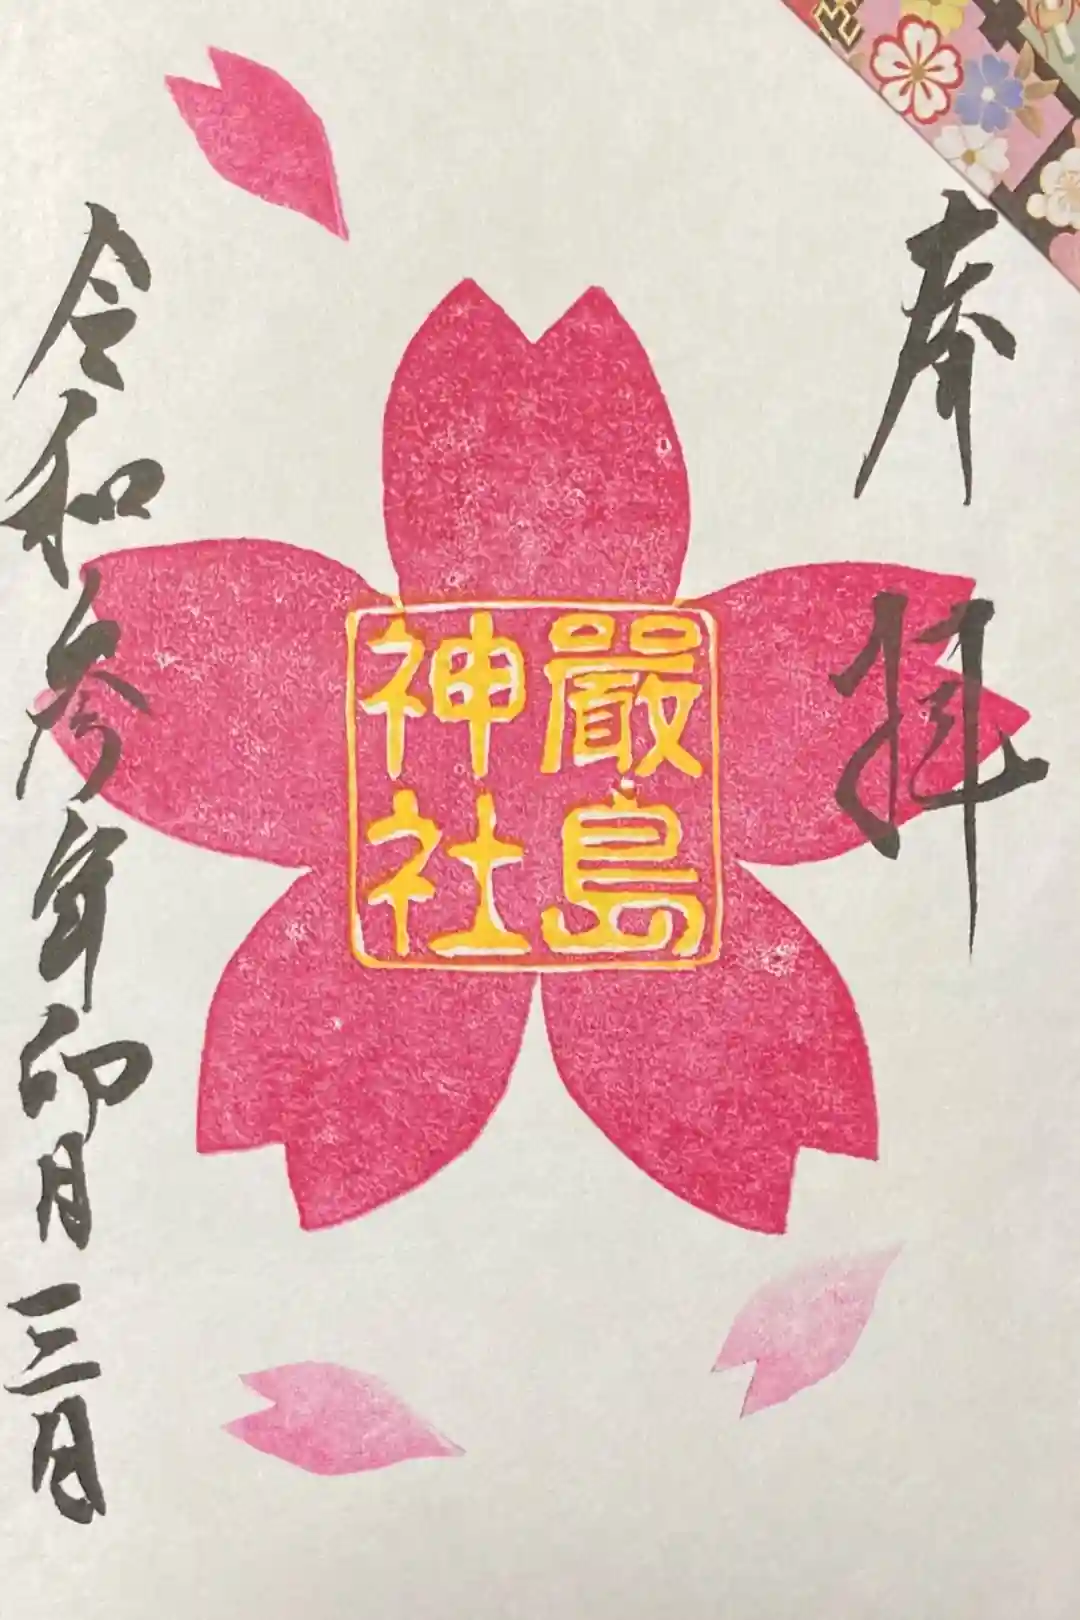 奉拝
嚴島
神社
令和参年卯月三日